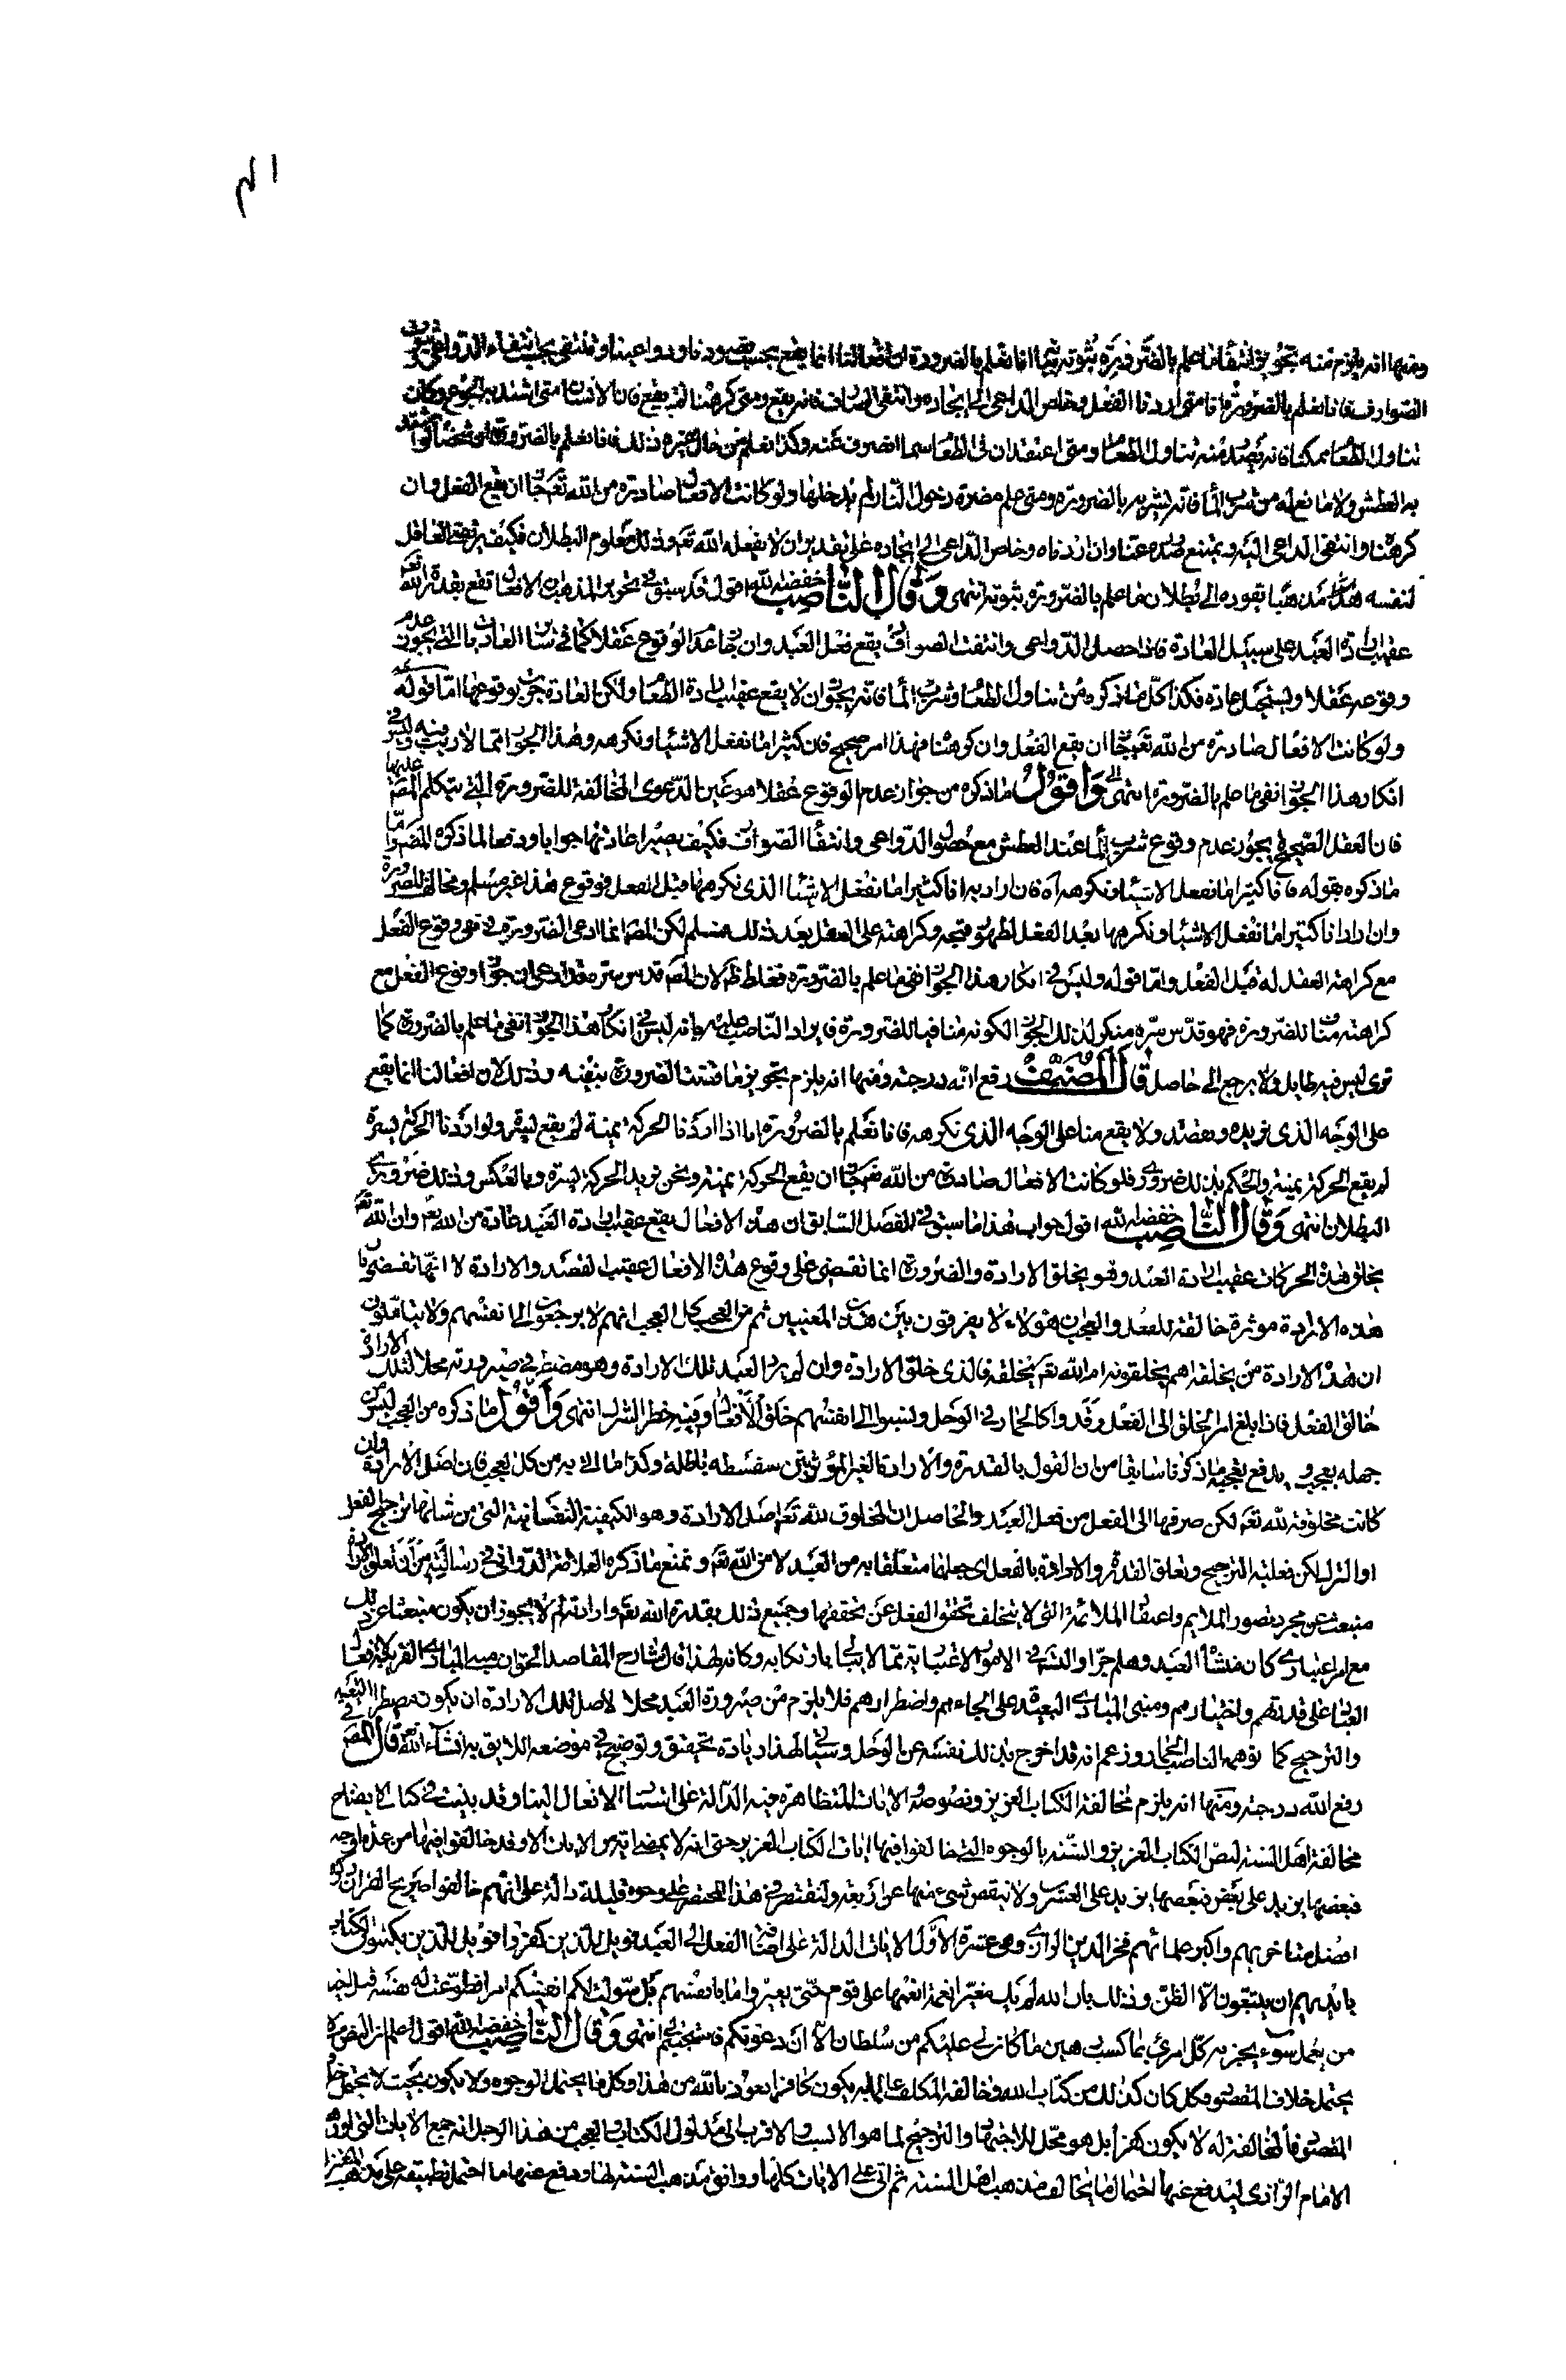 ومنها انه يلزم منه تجويز انتفاء ما علم بالضرورة ثبوته بيانه انا نعلم بالضرورة ان افعالنا انما يقع بحسب قصودنا ودواعينا وتنتفى بحسب انتفاء الدواعى وثبوت
الصوارف فانا نعلم بالضرورة انا متى اردنا الفعل وخلص الداعى الى ايجاده وانتفى الصارف فانه يقع ومتى كرهنا لم يقع فان الانسان متى اشتد به الجوع وكان
تناول الطعام ممكنا فانه يصدر منه تناول الطعام ومتى اعتقد ان فى الطعام سما انصرف عنه وكذا نعلم من حال غيره ذلك فانا نعلم بالضرورة ان شخصا لو اشتد
به العطش ولا مانع له من شرب الماء فانه يشربه بالضرورة ومتى علم مضرة دخول النار لم يدخلها ولو كانت الافعال صادرة من الله تعم جاز ان يقع الفعل وان
كرهنا وانتفى الداعى اليه ويمتنع صدوره عنا وان اردناه وخلص الداعى الى ايجاده على تقدير ان لا يفعله الله تعم وذلك معلوم البطلان فكيف يرتضى العاقل
لنفسه مذهبا يقوده الى بطلان ما علم بالضرورة ثبوته انتهى وقال الناصب خفضه الله اقول قد سبق فى تحرير المذهب ان الافعال تقع بقدرة الله تعم
عقيب ارادة العبد على سبيل العادة فاذا حصل الدواعى وانتفت الصوارف يقع فعل العبد وان جاز عدم الوقوع عقلا كما فى سائر العاديات التى يجوز عدم
وقوعه عقلا ويستحيل عادة فكذا كل ما ذكره من تناول الطعام وشرب الماء فانه يجوز ان لا يقع عقيب ارادة الطعام ولكن العادة جرت بوقوعها اما قوله
ولو كانت الافعال صادرة من الله تعم جاز ان يقع الفعل وان كرهنا فهذا امر صحيح فان كثيرا ما نفعل الاشياء ونكرهه وهذا الجواز مما لا ريب فيه وليس فى
انكار هذا الجواز نفى ما علم بالضرورة انتهى واقول ما ذكره من جواز عدم الوقوع عقلا هو عين الدعوى المخالفة للضرورة التى يتكلم المص عليها
فان العقل الصحيح لا يجوز عدم وقوع شرب الماء عند العطش مع حصول الدواعى وانتفاء الصوارف فكيف يصير اعادتها جوابا ودفعا لما ذكره المص واما
ما ذكره بقوله فانا كثيرا ما نفعل الاشياء ونكرهه اه فان اراد به انا كثيرا ما نفعل الاشياء الذى نكرهها قبل الفعل فوقوع هذا غير مسلم ومخالف للضرورة
وان اراد انا كثيرا ما نفعل الاشياء ونكرهها بعد الفعل لظهور قبحه وكراهته على العقل بعد ذلك مسلم لكن المص انما ادعى الضرورة فى نفى وقوع الفعل
مع كراهة العقل له قبل الفعل واما قوله وليس فى انكار هذا الجواز نفى ما علم بالضرورة فغلط ظ لان المص قدس سره قد ادعى ان جواز وقوع الفعل مع
كراهته مناف للضرورة فهو قدس سره منكر لذلك الجواز لكونه منافيا للضرورة فايراد الناصب عليه بانه ليس فى انكار هذا الجواز نفى ما علم بالضرورة كما
ترى ليس فيه طايل ولا يرجع الى حاصل قال المصنف رفع الله درجته ومنها انه يلزم تجويز ما قضت الضرورة بنفيه وذلك لان افعالنا انما يقع
على الوجه الذى نريده ونقصده ولا يقع منا على الوجه الذى نكرهه فانا نعلم بالضرورة انا اذا اردنا الحركة يمنة لم يقع يسرة ولو اردنا الحركة يسرة
لم يقع الحركة يمينة والحكم بذلك ضرورى فلو كانت الافعال صادرة من الله تعم جاز ان يقع الحركة يمنة ونحن نريد الحركة يسرة وبالعكس وذلك ضرورى
البطلان انتهى وقال الناصب خفضه الله اقول جواب هذا ما سبق فى الفصل السابق ان هذه الافعال يقع عقيب ارادة العبد عادة من الله تعم وان الله تعم
يخلق هذه الحركات عقيب ارادة العبد وهو يخلق الارادة والضرورة انما تقضى على وقوع هذه الافعال عقيب القصد والارادة لا انها تقضى بان
هذه الارادة موثرة خالقة للفعل والعجب ان هؤلاء لا يفرقون بين هذين المعنيين ثم من العجب كل العجب انهم لا يرجعون الى انفسهم ولا يتاملون
ان هذه الارادة من يخلقه اهم يخلقونه ام الله تعم يخلقه فالذى خلق الارادة وان لم يرد العبد تلك الارادة وهو مضطر فى صيرورته محلا لتلك الارادة
خالق الفعل فاذا بلغ امر الخلق الى الفعل رقدوا كالحمار فى الوحل ونسبوا الى انفسهم خلق الافعال وفيه خطر الشرك انتهى واقول ما ذكره من العجب ليس من
جهله بعجيب ويدفع تعجبه ما ذكرنا سابقا من ان القول بالقدرة والارادة الغير المؤثرتين سفسطه باطلة وكذا ما الى به من كل العجب فان اصل الارادة وان
كانت مخلوقة لله تعم لكن صرفها الى الفعل من فعل العبد والحاصل ان المخلوق لله تعم اصل الارادة وهو الكيفية النفسانية التى من شانها ترجيح الفعل
او الترك لكن فعلية الترجيح وتعلق القدرة والارادة بالفعل اى جعلها متعلقا به من العبد لا من الله تعم ونمنع ما ذكره العلامة الدوانى فى رسالته من ان تعلق الارادة
منبعث عن مجرد تصور الملايم واعتقاد الملائمة التى لا يتخلف تحقق الفعل عن تحققها وجميع ذلك بقدرة الله تعم وارادته لم لا يجوز ان يكون منبعثا عن ذلك
مع امر اعتبارى كان منشأ العبد وهلم جرا والتسلسل فى الامور الاعتبارية مما لا يبالى بارتكابه وكانه لهذا قال شارح المقاصد الحق ان مبنى المبادى القريبة لافعال
العباد على قدرتهم واختيارهم ومبنى المبادى البعيدة على الجاءهم واضطرارهم فلا يلزم من صيرورة العبد محلا لاصل تلك الارادة ان يكون مضطرا فى
والترجيح كما توهمه الناصب الحمار وزعم انه قد اخرج بذلك نفسه عن الوحل وسياتى لهذا زيادة تحقيق وتوضيح فى موضعه اللايق به انشاء الله تعم قال المص
رفع الله درجته ومنها انه يلزم مخالفة الكتاب العزيز ونصوصه والايات المتظاهرة فيه الدالة على استناد الافعال الينا وقد بينت فى كتاب الايضاح
مخالفة اهل السنة لنص الكتاب العزيز والسنة بالوجوه التى خالفوا فيها ايات الكتاب العزيز حتى انه لا يمضى اية من الايات الا وقد خالفوا فيها من عدة اوجه
فبعضها يزيد على بعض فبعضها يزيد على العشرين ولا ينقص شىء منها عن اربعة ولنقتصر فى هذا المختصر على وجوه قليلة دالة على انهم خالفوا صريح القران ذكرها
افضل متاخريهم واكبر علمائهم فخر الدين الرازى وهى عشرة الاول الايات الدالة على اضافة الفعل الى العبد فويل للذين كفروا فويل للذين يكتبون الكتاب
بايديهم ان يتبعون الا الظن وذلك بان الله لم يك مغيرا نعمة انعمها على قوم حتى يغيروا ما بانفسهم بل سولت لكم انفسكم امرا فطوعت له نفسه قتل اخيه
من يعمل سوء يجز به كل امرئ بما كسب رهين ما كان لى عليكم من سلطان الا ان دعوتكم فاستجبتم لى انتهى وقال الناصب خفضه الله اقول اعلم ان النص ما لا
يحتمل خلاف المقصود وكل كان كذلك من كتاب الله فمخالفة المكلف عالما به يكون كافرا نعوذ بالله من هذا وكل ما يحتمل الوجوه ولا يكون بحيث لا يحتمل خلاف
المقصود فالمخالفة له لا يكون كفرا بل هو محل للاجتهاد والترجيح لما هو الانسب والاقرب الى مدلول الكتاب والعجب من هذا الرجل انه جمع الايات التى اوردها
الامام الرازى ليدفع عنها احتمال ما يخالف مذهب اهل السنة ثم اتى على الايات كلها ووافق مذهب السنة لها ودفع عنها ما احتمل تطبيقه على مذهب المعتزلة